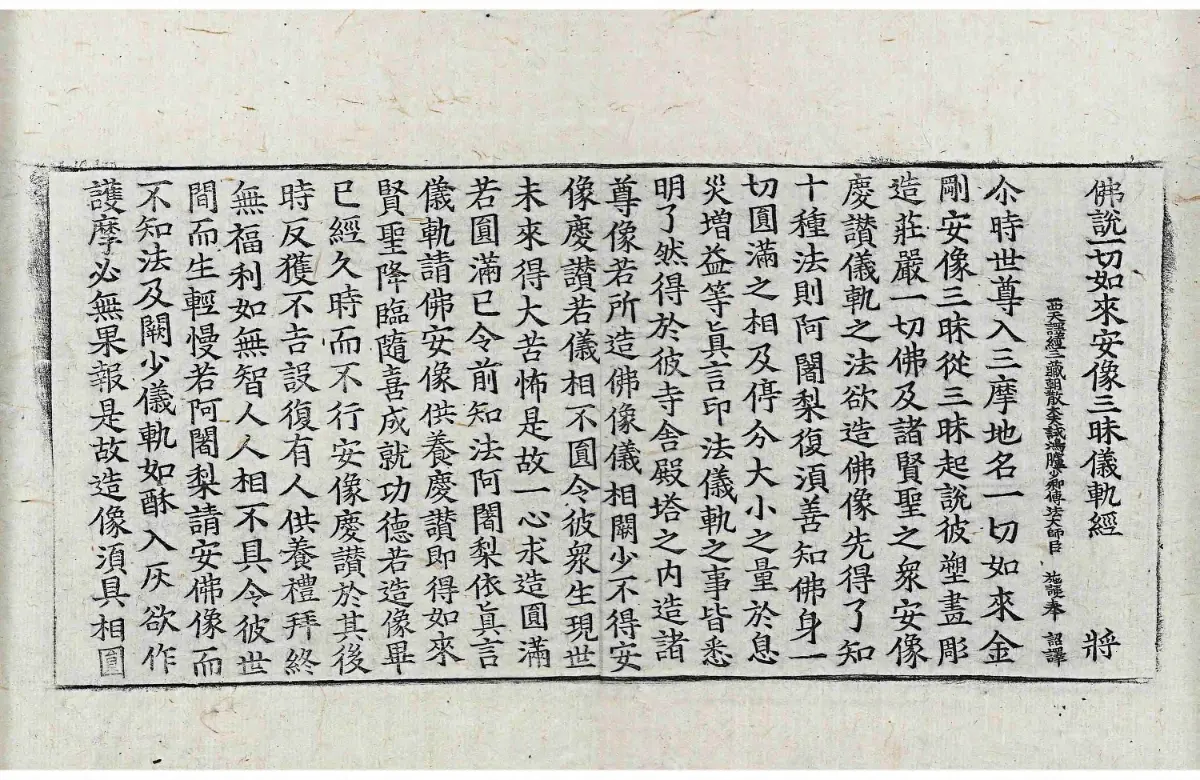 佛說一切如來安像三昧儀軌經 將
西天譯經三藏朝散大夫試鴻臚少卿傳法大師臣 施護奉 詔譯
尒時世尊入三摩地名一切如來金
剛安像三昧從三昧起說彼塑畫彫
造莊嚴一切佛及諸賢聖之衆安像
慶讚儀軌之法欲造佛像先得了知
十種法則阿闍梨復湏善知佛身一
切圓滿之相及停分大小之量於息
災增益等眞言印法儀軌之事皆悉
明了然得於彼寺舍殿塔之內造諸
尊像若所造佛像儀相闕少不得安
像慶讚若儀相不圓令彼衆生現世
未來得大苦怖是故一心求造圓滿
若圓滿已令前知法阿闍梨依眞言
儀軌請佛安像供養慶讚即得如來
賢聖降臨隨喜成就功德若造像畢
已經久時而不行安像慶讚於其後
時反獲不吉設復有人供養禮拜終
無福利如無智人人相不具令彼世
間而生輕慢若阿闍梨請安佛像而
不知法及闕少儀軌如酥入灰欲作
護摩必無果報是故造像湏具相圓